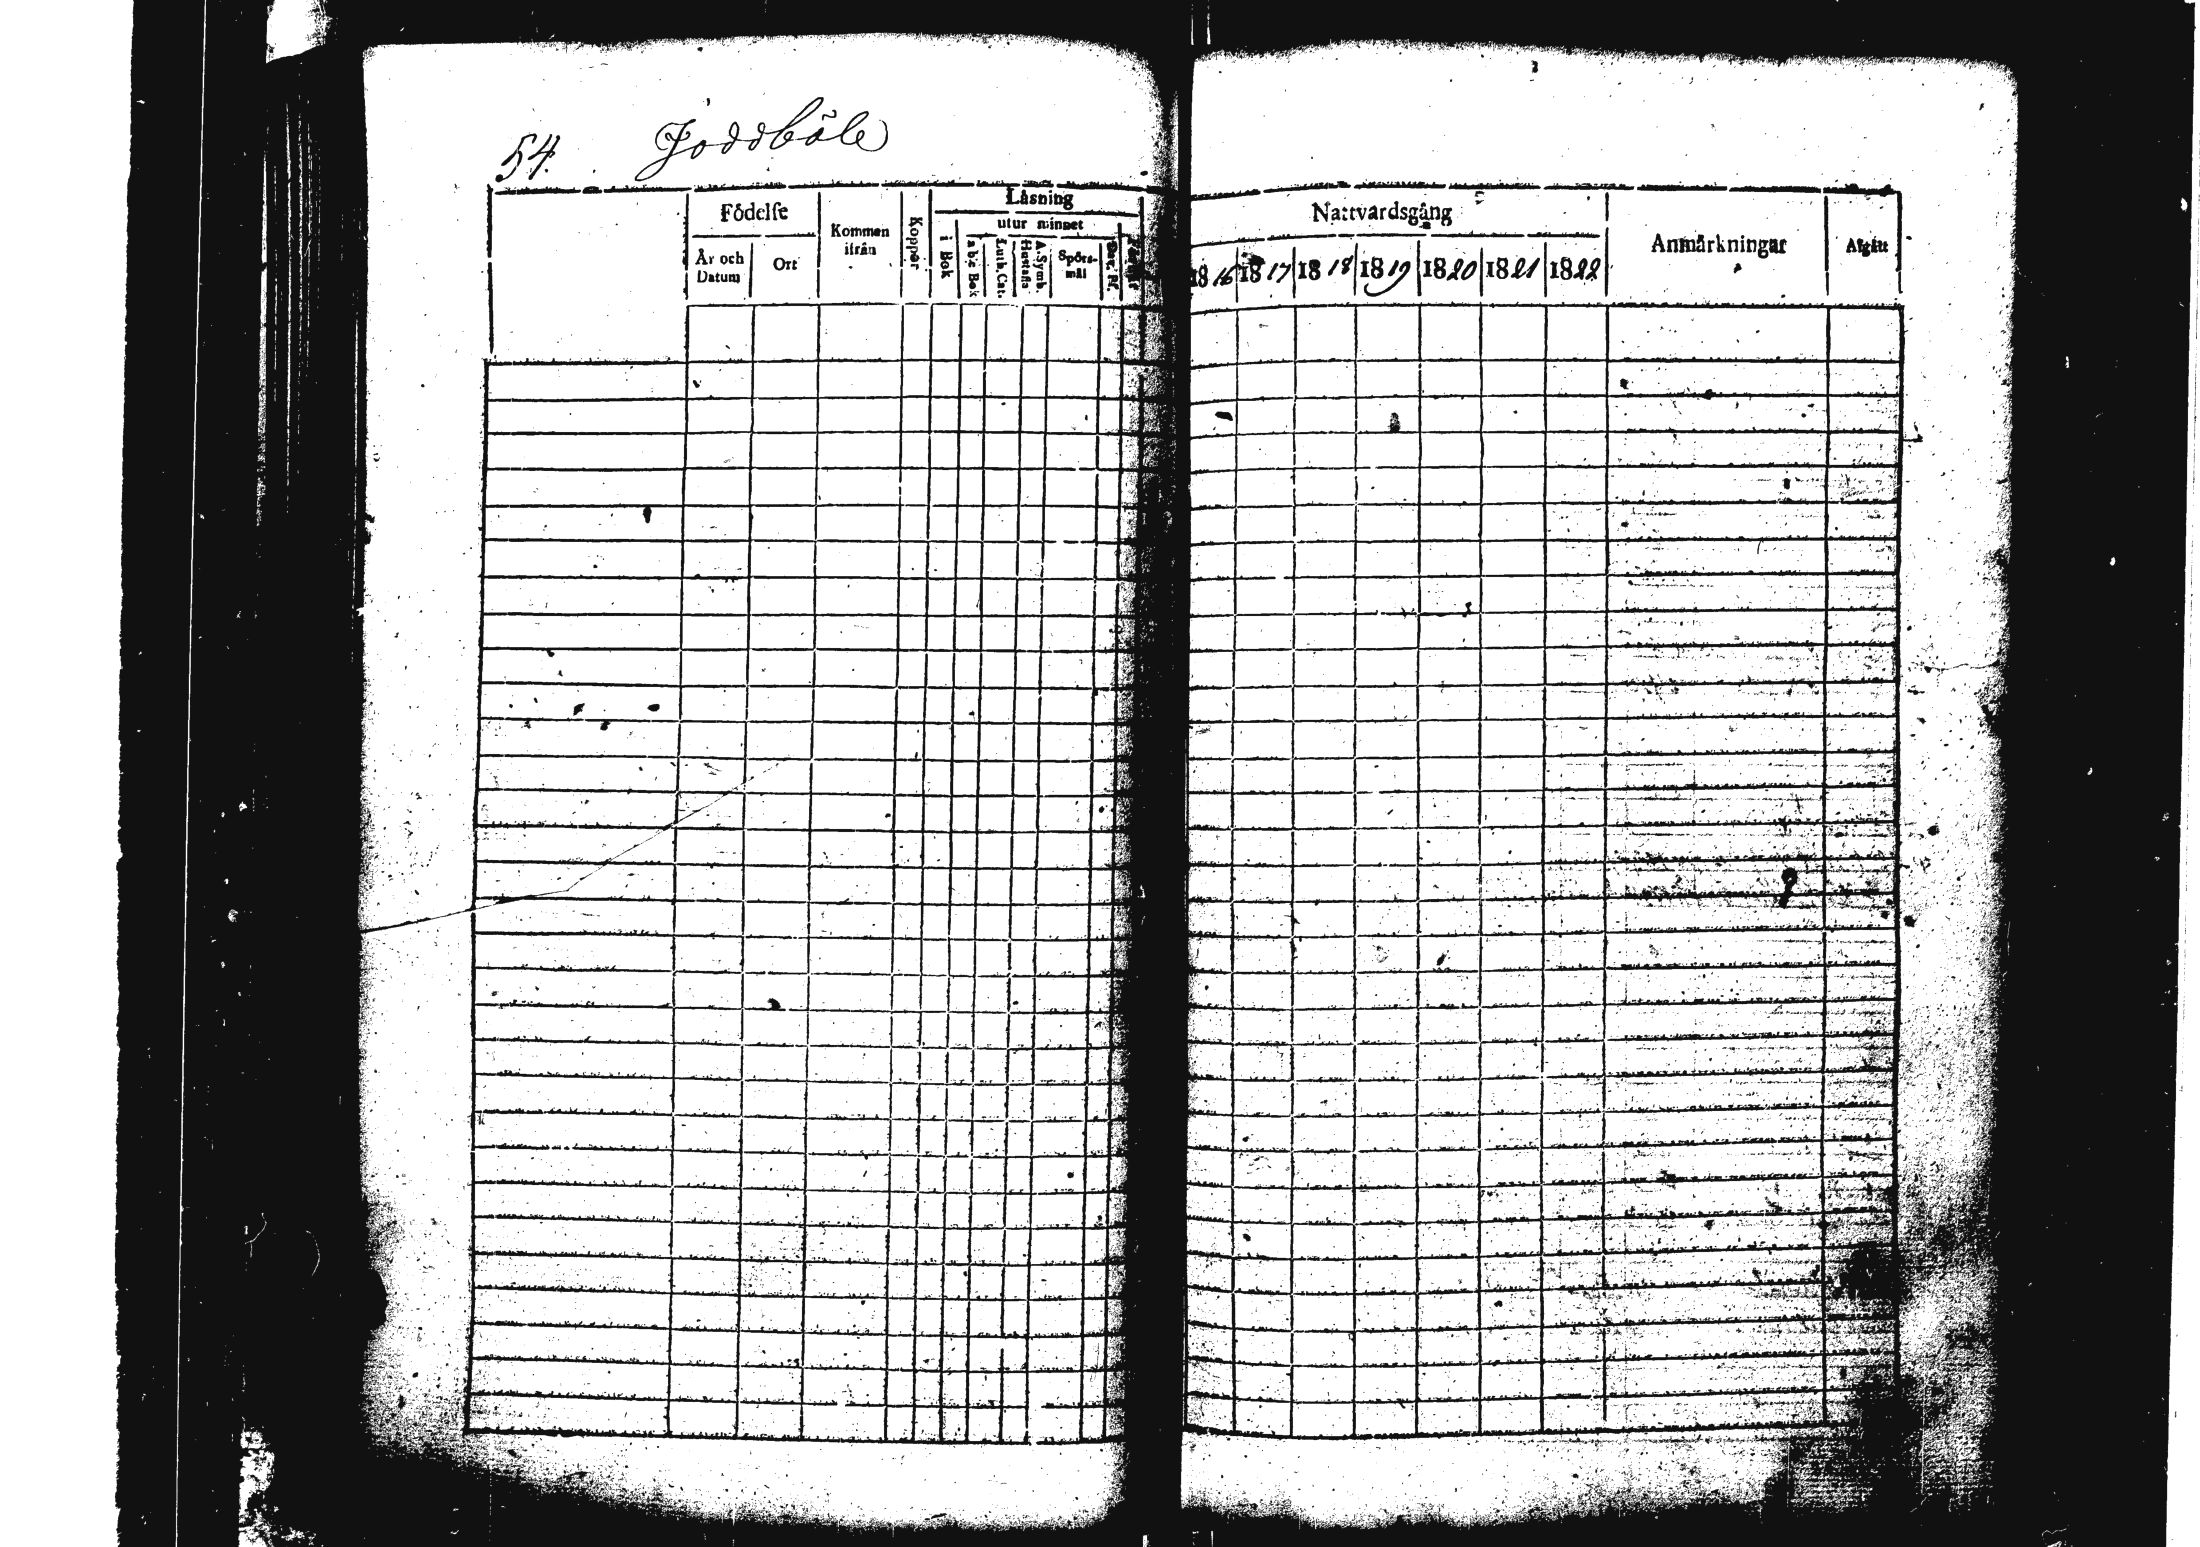 54. Joddböle
Födelse
År och Datum
Ort
Kommen ifrån
Koppor
Läsning
i Bok
utur minnet
a b c Bok
Luth. Cat.
A. Symb. Hustafla
Spörsmål
Dav. Pf.
Nattvardsgång
1816 1817 1818 1819 1820 1821 1822
Anmärkningar
Afgått